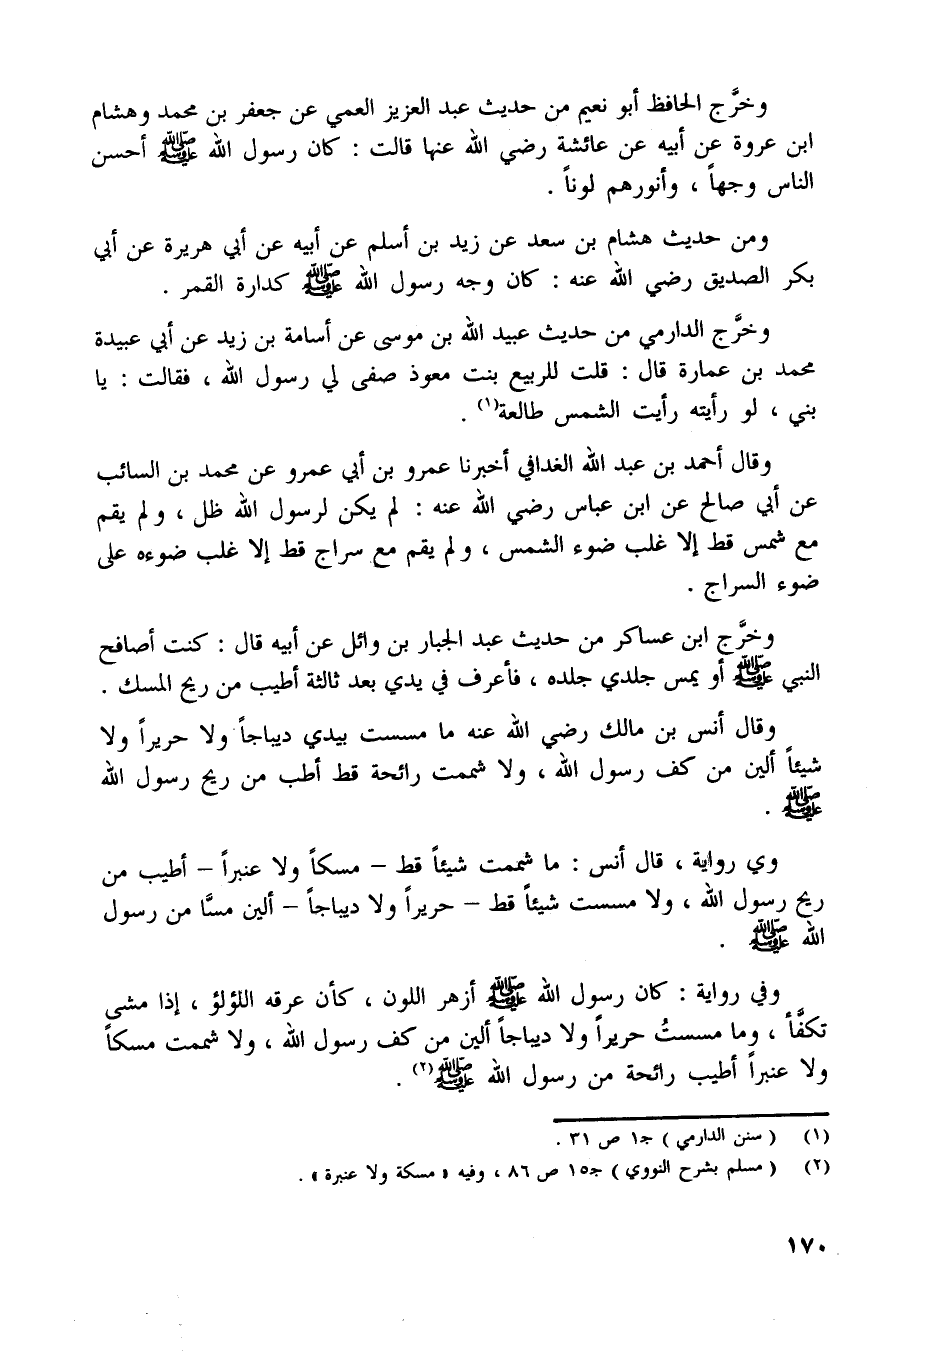 وخرَّج الحافظ أبو نعيم من حديث عبد العزيز العمي عن جعفر بن محمد وهشام
ابن عروة عن أبيه عن عائشة رضي الله عنها قالت : كان رسول الله ﷺ أحسن
الناس وجهاً ، وأنورهم لوناً .
ومن حديث هشام بن سعد عن زيد بن أسلم عن أبيه عن أبي هريرة عن أبي
بكر الصديق رضي الله عنه : كان وجه رسول الله ﷺ كدارة القمر .
وخرَّج الدارمي من حديث عبيد الله بن موسى عن أسامة بن زيد عن أبي عبيدة
محمد بن عمارة قال : قلت للربيع بنت معوذ صفى لي رسول الله ، فقالت : يا
بني ، لو رأيته رأيت الشمس طالعة(١) .
وقال أحمد بن عبد الله الغدافي أخبرنا عمرو بن أبي عمرو عن محمد بن السائب
عن أبي صالح عن ابن عباس رضي الله عنه : لم يكن لرسول الله ظل ، ولم يقم
مع شمس قط إلا غلب ضوء الشمس ، ولم يقم مع سراج قط إلا غلب ضوءه على
ضوء السراج .
وخرَّج ابن عساكر من حديث عبد الجبار بن وائل عن أبيه قال : كنت أصافح
النبي ﷺ أو يمس جلدي جلده ، فأعرف في يدي بعد ثالثة أطيب من ريح المسك .
وقال أنس بن مالك رضي الله عنه ما مسست بيدي ديباجاً ولا حريراً ولا
شيئاً ألين من كف رسول الله ، ولا شممت رائحة قط أطب من ريح رسول الله
ﷺ .
وي رواية ، قال أنس : ما شممت شيئاً قط – مسكاً ولا عنبراً – أطيب من
ريح رسول الله ، ولا مسست شيئاً قط – حريراً ولا ديباجاً – ألين مسَّا من رسول
الله ﷺ .
وفي رواية : كان رسول الله ﷺ أزهر اللون ، كأن عرقه اللؤلؤ ، إذا مشى
تكفَّأ ، وما مسستُ حريراً ولا ديباجاً ألين من كف رسول الله ، ولا شممت مسكاً
ولا عنبراً أطيب رائحة من رسول الله ﷺ(٢) .
(١) ( سنن الدارمي ) جـ١ ص ٣١ .
(٢) ( مسلم بشرح النووي ) جـ١٥ ص ٨٦ ، وفيه « مسكة ولا عنبرة » .
١٧٠